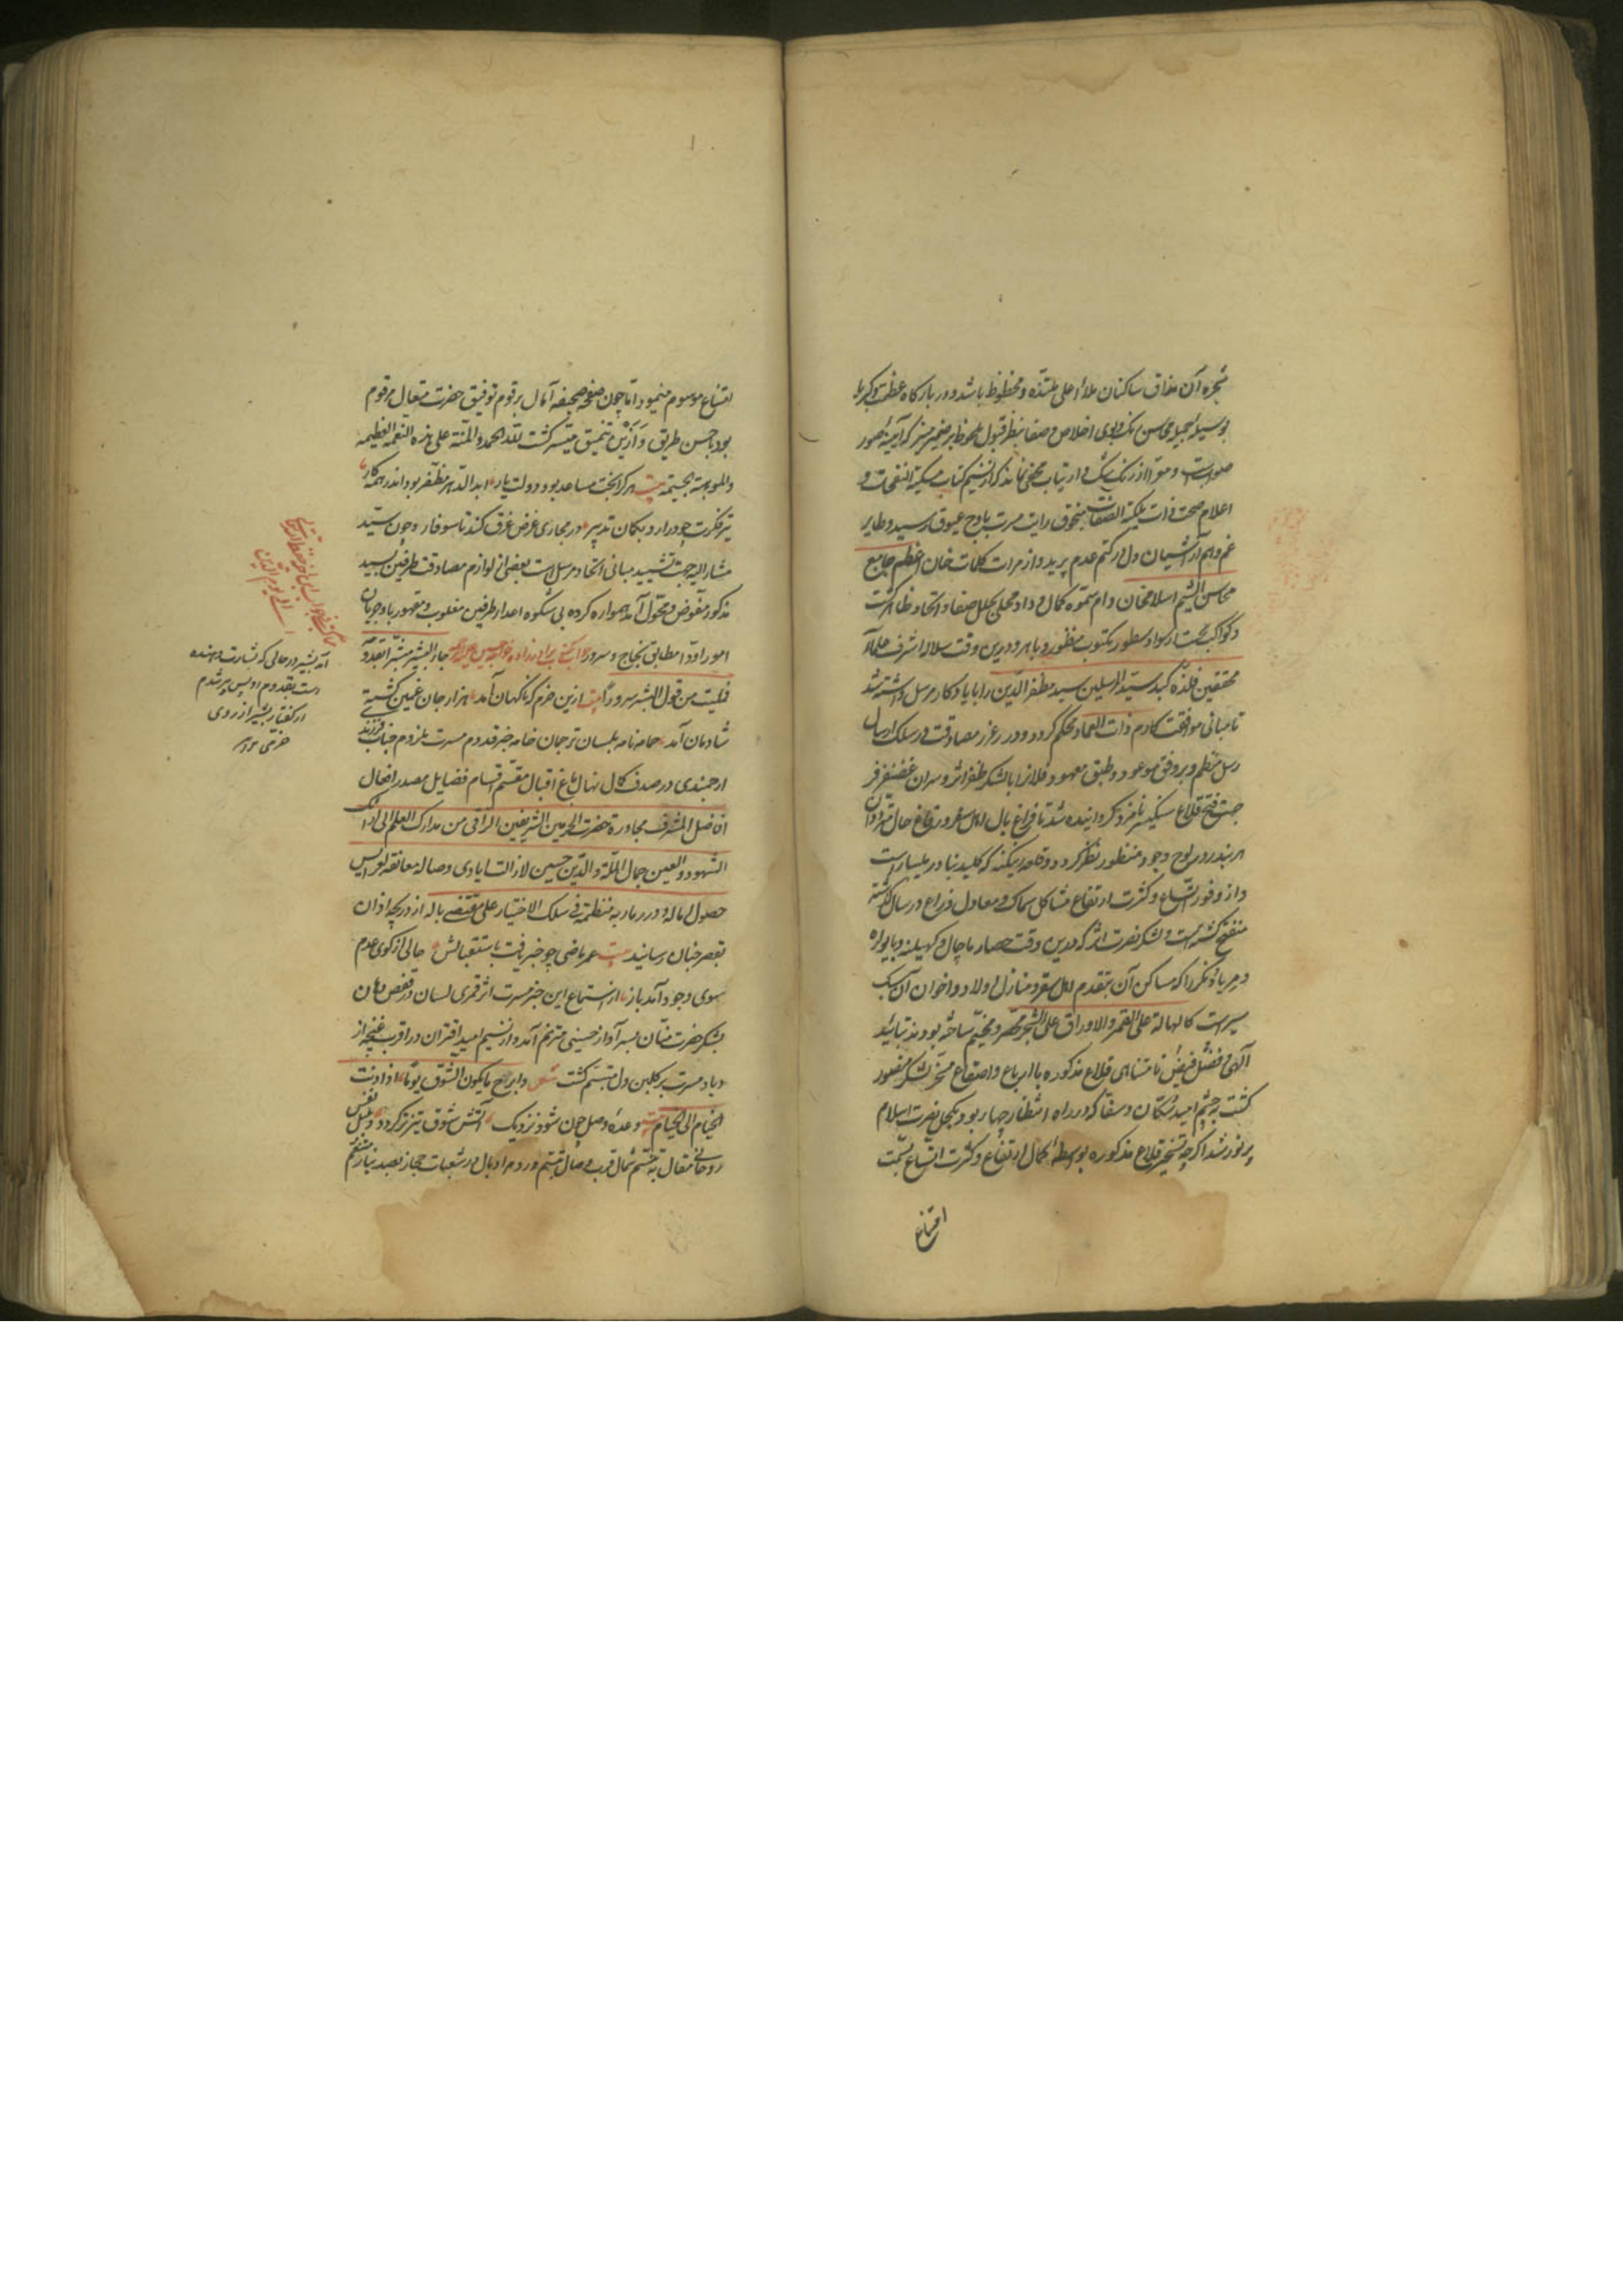 ثمره آن مذاق ساکنان ملاء اعلی ملتذه و محظوظ باشد و در بارگاه عظمت و کبریا
بوسیله جمیله محاسن رنگ و بوی اخلاص و صفا بنظر قبول ملحوظ بر ضمیر منیر که آیینه صور
صواب است و معرا از زنگ شک و ارتیاب مخفی نماند که از نسیم کتاب مسکیة النفحات و
اعلام صحت ذات ملکیة الصفات سنجوق رایت مسرت باوج عیوق رسید و طایر
غم و هم از آشیان دل در کتم عدم پرید و از مرات کلمات خان اعظم جامع
محاسن الشیم اسلامخان دام سموه کمال وداد محلی بحلل صفا و اتحاد ظاهر گشت
و کواکب از سواد سطور مکتوب منظور و باهر و درین وقت سلاله اشرف علماء
محققین فلذه کبد سید المرسلین سید مظفر الدین را با یادکار مرسل داشته شد
تا مبانی موافقت کارم ذات العماد محکم گردد و درر غرر مصادقت در سلک ارسال
رسل منظم و بر وفق موعود و طبق معهود فلانرا بالشکر ظفر اثر و سران غضنفر فر
جهت فتح قلاع سنگیسر نامزد گردانیده شد تا فراغ بال اهل سفر و رقاع حال متردان
هر بندر در لوح وجود منظور نظر گردد و قلعه رینگنه که کلید بنادر ملیبار است
و از وفور اتساع و کثرت ارتفاع مشاکل سماک و معادل ذراع در سال گذشته
منفتح گشته است و لشکر نصرت اثر که درین وقت حصار ماچال و کهیلنه و بایواره
و مریاد و نگرا که مساکن آن بتقدم اهل سقر و منازل اولاد و اخوان آن سک
سیرت کالهالة علی القمر والاوراق علی الشجر مقر و مخیم ساخته بودند بتائید
الهی و فضل فیض نامتناهی قلاع مذکوره با ارباع و اصقاع مسخر لشکر منصور
گشت و چشم امید سکان و سفار که در راه انتظار چهار بود بکحل نصرت اسلام
پر نور شد اگر چه تسخیر قلاع مذکوره بواسطه کمال ارتفاع و کثرت اتساع بسمت
امتناع
امتناع موسوم مینمود اما چون صفحه صحیفه آمال برقوم توفیق حضرت متعال مرقوم
بود باحسن طریق و ازین تنمیق میسر گشت لله الحمد والمنة علی هذه النعمه العظیمه
والموهبة الجسیمة بیت هر کرا بخت مساعد بود و دولت یار ابد الدهر مظفر بود اندر همه کار
تیر فکرت چو در ارد بکمان تدبیر در مجاری غرض غرق کند تا سوفار و چون سید
مشار الیه جهت تشیید مبانی اتحاد مرسل است بعضی از لوازم مصادقت طرفین بسید
مذکور مفوض و محول آمد همواره گرده بی شکوه اعداء طرفین مغلوب و مقهور باد و جریان
امور اودا مطابق نجاح و سرور جاء البشیر مبشرا بقدومه
فملیت من قول البشیر سرورا بیت ازین خرم که ناگهان آمد هزار جان غمین گشته
شادمان آمد حامه نامه بلسان ترجمان خامه خبر قدوم مسرت ملزوم جناب فرزند
ارجمندی در صدف کمال نهال باغ اقبال مقسم اقسام فضایل مصدر افعال
افاضل المشرف مجاورة حضرت الحرمین الشریفین الراقی من مدارک العلم الی ادراک
الشهود و العین جمال الملة والدین حسین لازالت ایادی وصاله معانقه لعرایس
حصول اماله و درر مآربه منتظمة فی سلک الاختیار علی مقتضی باله از دریچه اذان
بقصر جنان رسانید بیت عمر ماضی چو خبر یافت باستقبالش حالی از کوی عدم
سوی وجود آمد باز از استماع این خبر مسرت اثر قمری لسان در قفص دهان
بشکر حضرت منان بسر آواز حسینی مترنم آمد و از نسیم امید اقتران در اقرب غنچه از
و یاد مسرت بر گلبن دل متبسم گشت شعر وابرح ما یکون الشوق یوما اذا دنت
الخیام الی الخیام بیت وعده وصل چون شود نزدیک آتش شوق تیزتر گردد و بلبل نفس
روحانی مقال بتنسم شمال قرب وصال متبسم ورد مراد بال در شعبات حجاز بصد نیاز مترنم
آمد بشیر در حالی که بشارت دهنده
است بقدوم او پس پر شدم
از گفتار بشیر از روی
خرمی